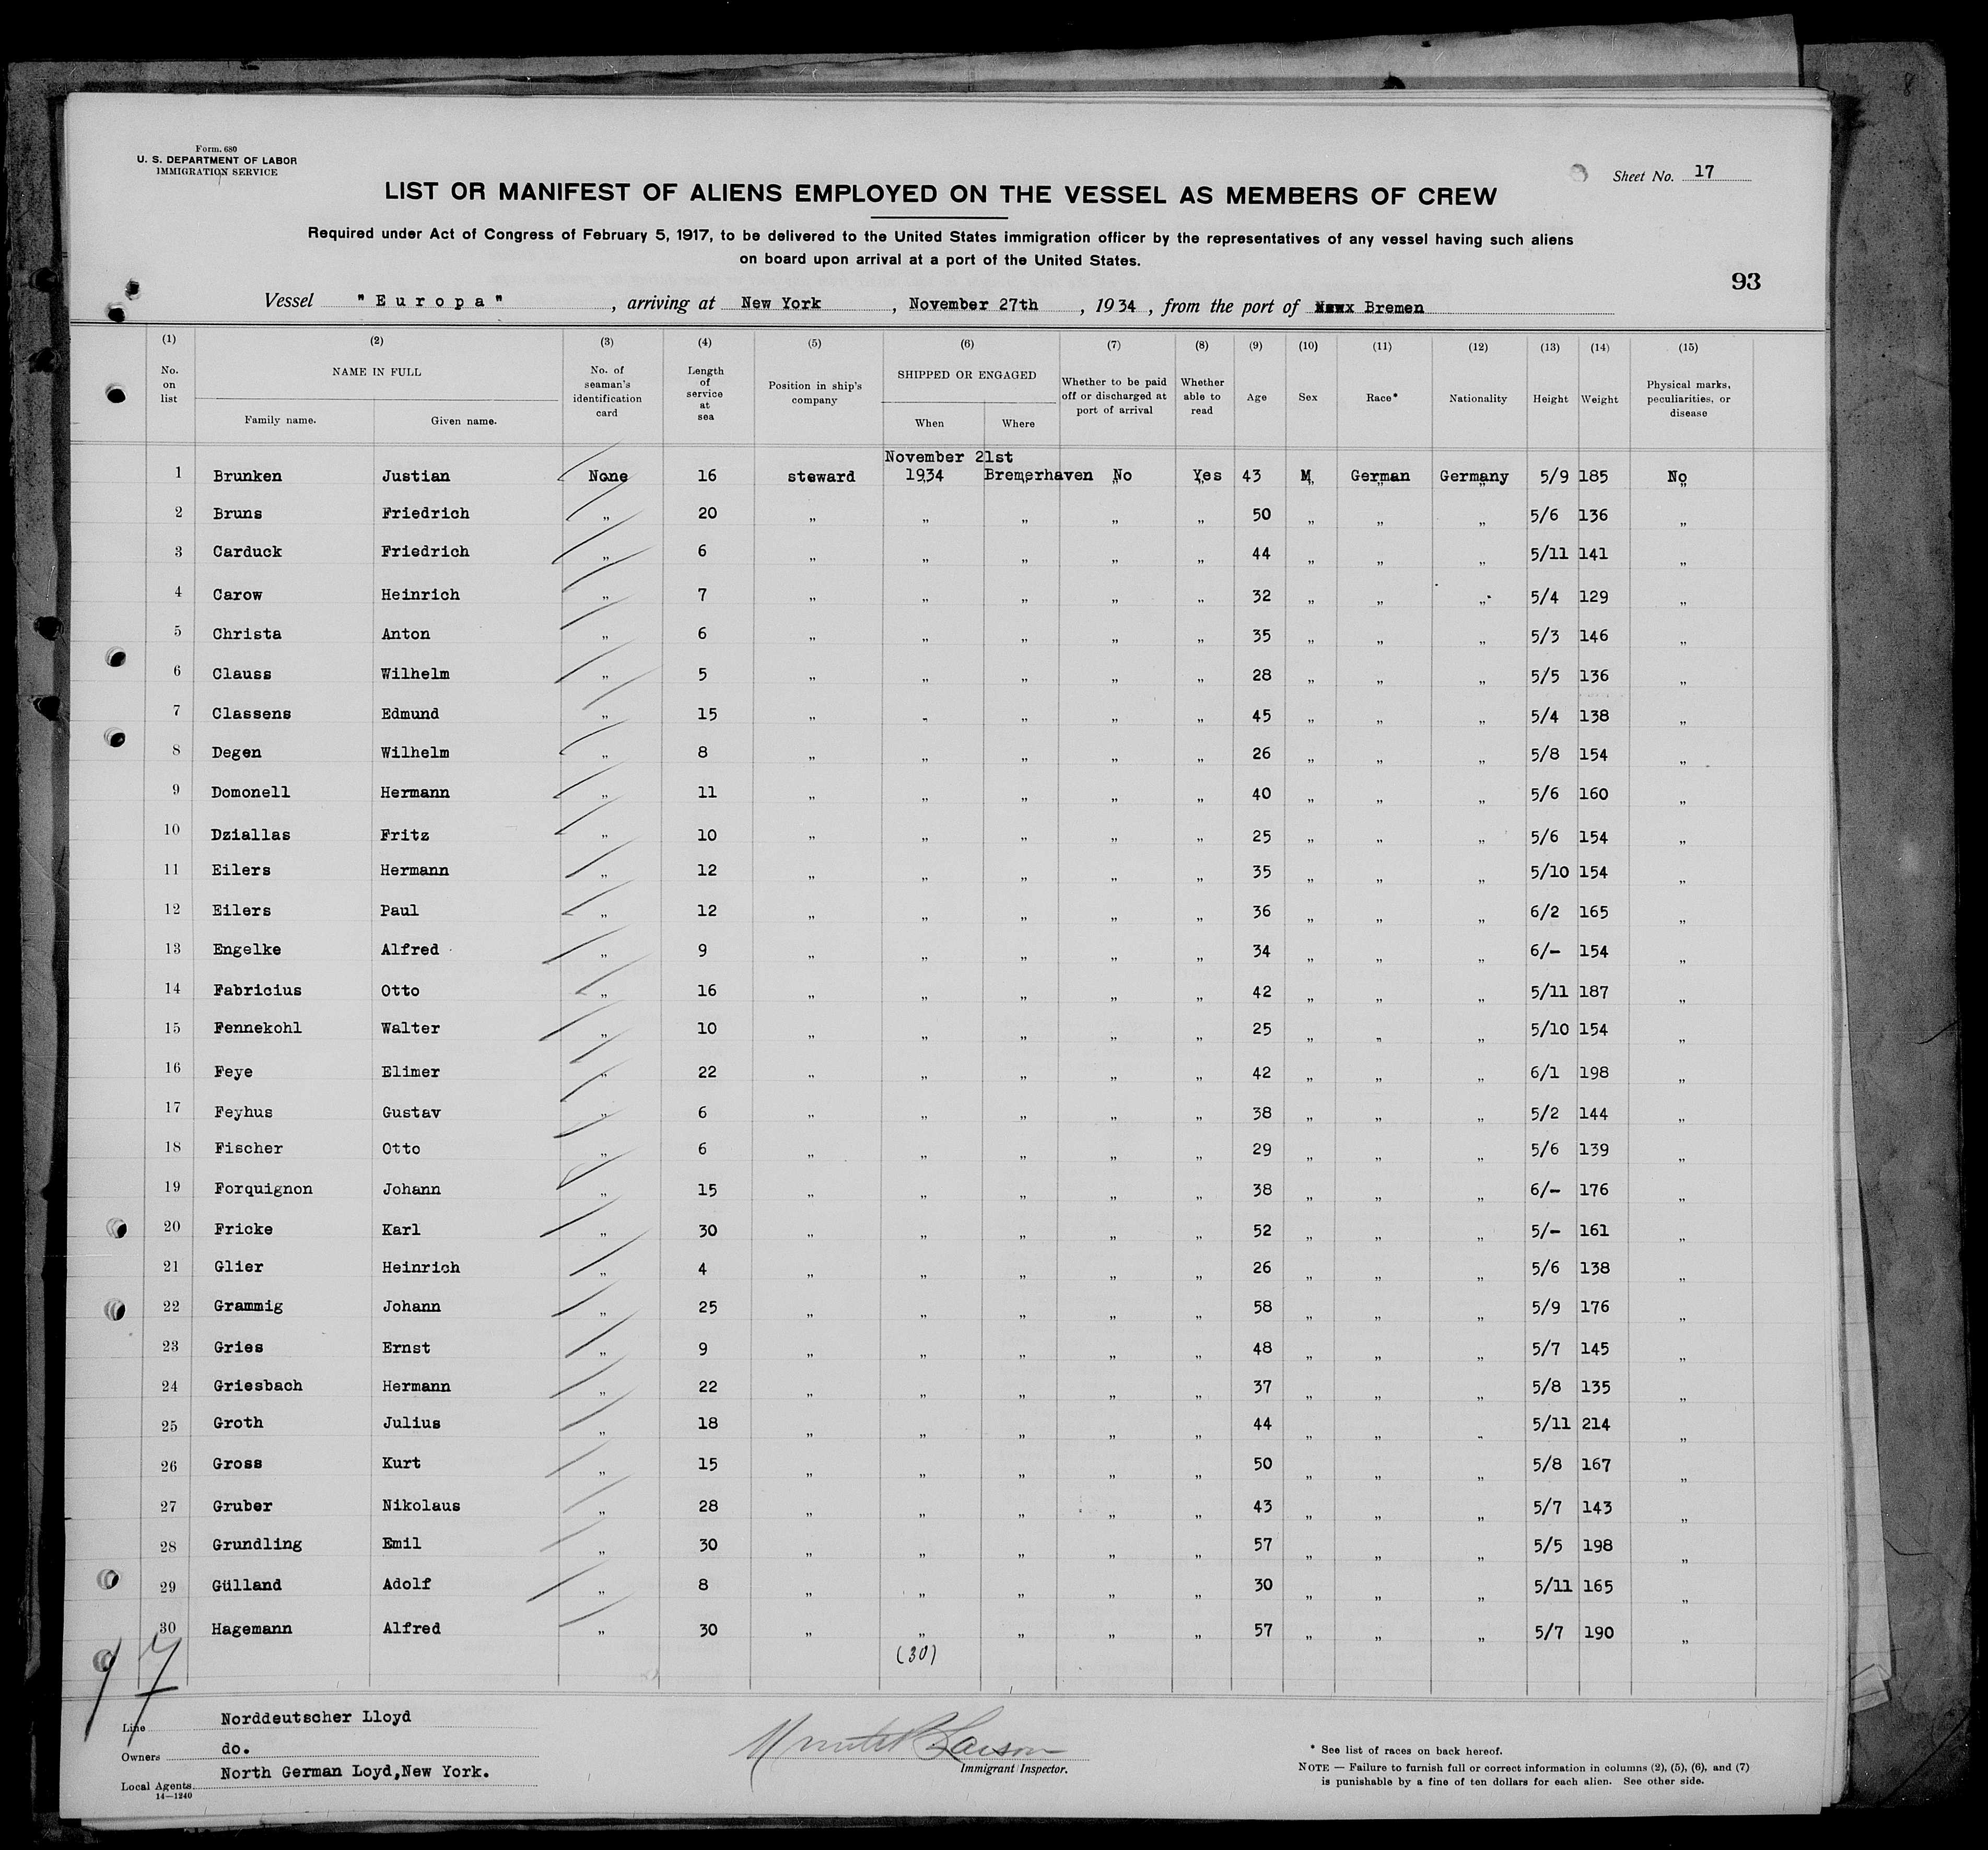 Form. 680
U. S. DEPARTMENT OF LABOR
IMMIGRATION SERVICE
Sheet No. 17
LIST OR MANIFEST OF ALIENS EMPLOYED ON THE VESSEL AS MEMBERS OF CREW
Required under Act of Congress of February 5, 1917, to be delivered to the United States immigration officer by the representatives of any vessel having such aliens
on board upon arrival at a port of the United States.
93
Vessel "Europa", arriving at New York, November 27th, 1934, from the port of Bremen
(1) (2) (3) (4) (5) (6) (7) (8) (9) (10) (11) (12) (13) (14) (15)
No. on list NAME IN FULL Family name. Given name. No. of seaman's identification card Length of service at sea Position in ship's company SHIPPED OR ENGAGED When Where Whether to be paid off or discharged at port of arrival Whether able to read Age Sex Race* Nationality Height Weight Physical marks, peculiarities, or disease
November 21st
1 Brunken Justian None 16 steward 1934 Bremerhaven No Yes 43 M German Germany 5/9 185 No
2 Bruns Friedrich " 20 " " " " " 50 " " " 5/6 136 "
3 Carduck Friedrich " 6 " " " " " 44 " " " 5/11 141 "
4 Carow Heinrich " 7 " " " " " 32 " " " 5/4 129 "
5 Christa Anton " 6 " " " " " 35 " " " 5/3 146 "
6 Clauss Wilhelm " 5 " " " " " 28 " " " 5/5 136 "
7 Classens Edmund " 15 " " " " " 45 " " " 5/4 138 "
8 Degen Wilhelm " 8 " " " " " 26 " " " 5/8 154 "
9 Domonell Hermann " 11 " " " " " 40 " " " 5/6 160 "
10 Dziallas Fritz " 10 " " " " " 25 " " " 5/6 154 "
11 Eilers Hermann " 12 " " " " " 35 " " " 5/10 154 "
12 Eilers Paul " 12 " " " " " 36 " " " 6/2 165 "
13 Engelke Alfred " 9 " " " " " 34 " " " 6/- 154 "
14 Fabricius Otto " 16 " " " " " 42 " " " 5/11 187 "
15 Fennekohl Walter " 10 " " " " " 25 " " " 5/10 154 "
16 Feye Elimer " 22 " " " " " 42 " " " 6/1 198 "
17 Feyhus Gustav " 6 " " " " " 38 " " " 5/2 144 "
18 Fischer Otto " 6 " " " " " 29 " " " 5/6 139 "
19 Forquignon Johann " 15 " " " " " 38 " " " 6/- 176 "
20 Fricke Karl " 30 " " " " " 52 " " " 5/- 161 "
21 Glier Heinrich " 4 " " " " " 26 " " " 5/6 138 "
22 Grammig Johann " 25 " " " " " 58 " " " 5/9 176 "
23 Gries Ernst " 9 " " " " " 48 " " " 5/7 145 "
24 Griesbach Hermann " 22 " " " " " 37 " " " 5/8 135 "
25 Groth Julius " 18 " " " " " 44 " " " 5/11 214 "
26 Gross Kurt " 15 " " " " " 50 " " " 5/8 167 "
27 Gruber Nikolaus " 28 " " " " " 43 " " " 5/7 143 "
28 Grundling Emil " 30 " " " " " 57 " " " 5/5 198 "
29 Gülland Adolf " 8 " " " " " 30 " " " 5/11 165 "
30 Hagemann Alfred " 30 " " " " " 57 " " " 5/7 190 "
(30)
17
Line Norddeutscher Lloyd
Owners do.
Local Agents North German Loyd,New York.
14—1240
Immigrant Inspector.
* See list of races on back hereof.
NOTE — Failure to furnish full or correct information in columns (2), (5), (6), and (7)
is punishable by a fine of ten dollars for each alien. See other side.